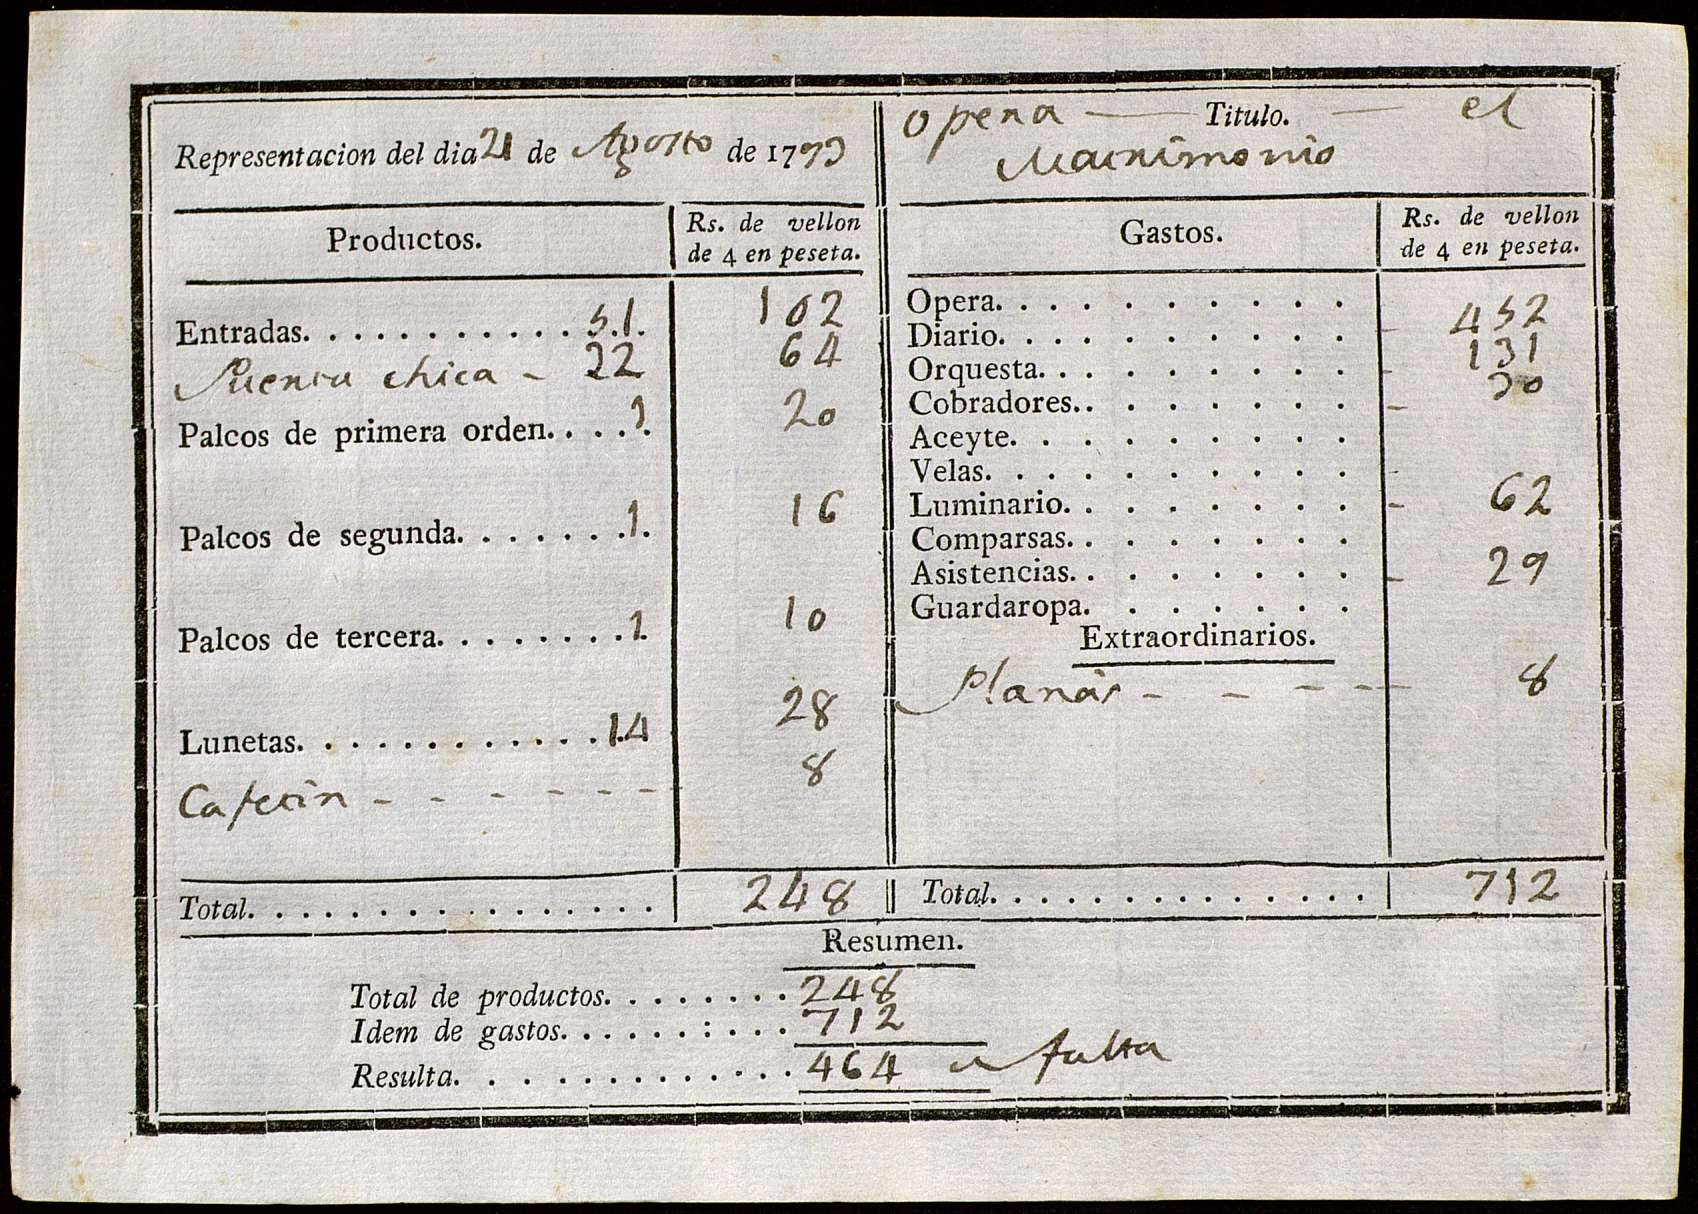 Representacion del dia 21 de Agosto de 1793
Opera Titulo. el
Matrimonio
Productos.
Rs. de vellon
de 4 en peseta.
Entradas. . . . . . . . . . . 51. 102
Puerta chica - 32 64
Palcos de primera orden. . . . 1. 20
Palcos de segunda. . . . . . . 1. 16
Palcos de tercera. . . . . . . . 1. 10
Lunetas. . . . . . . . . . . . 14 28
Cafetin - - - - - - 8
Total. . . . . . . . . . . . . . . . 248
Gastos.
Rs. de vellon
de 4 en peseta.
Opera. . . . . . . . . .
Diario. . . . . . . . . . - 452
Orquesta. . . . . . . . . - 131
Cobradores. . . . . . . . - 30
Aceyte. . . . . . . . .
Velas. . . . . . . . . . -
Luminario. . . . . . . . - 62
Comparsas. . . . . . . .
Asistencias. . . . . . . . - 29
Guardaropa. . . . . . .
Extraordinarios.
Planas - - - - 8
Total. . . . . . . . . . . . . . . 712
Resumen.
Total de productos. . . . . . . . 248
Idem de gastos. . . . . . : . . . 712
Resulta. . . . . . . . . . . . . 464 falta